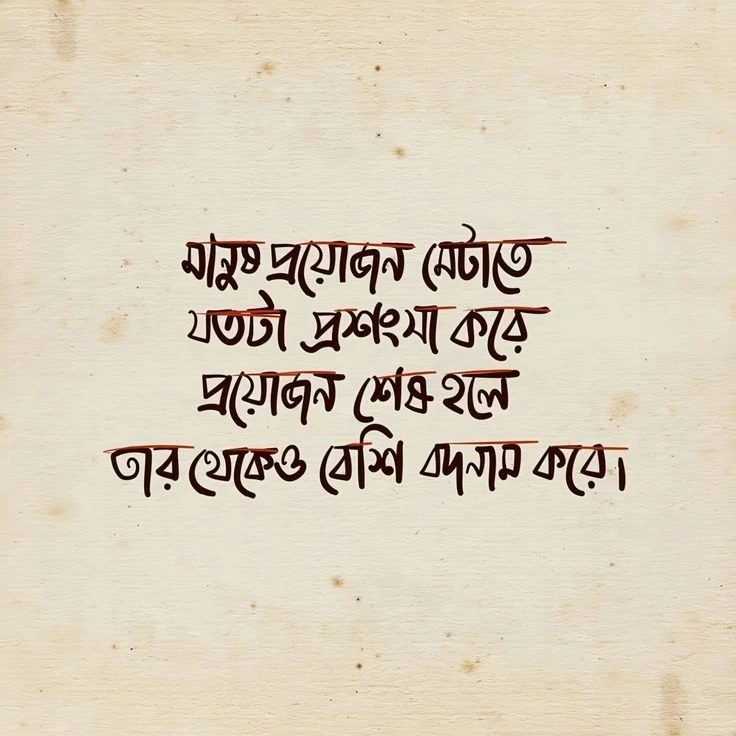 মানুষ প্রয়োজন মেটাতে
যতটা প্রশংসা করে
প্রয়োজন শেষ হলে
তার থেকেও বেশি বদনাম করে।